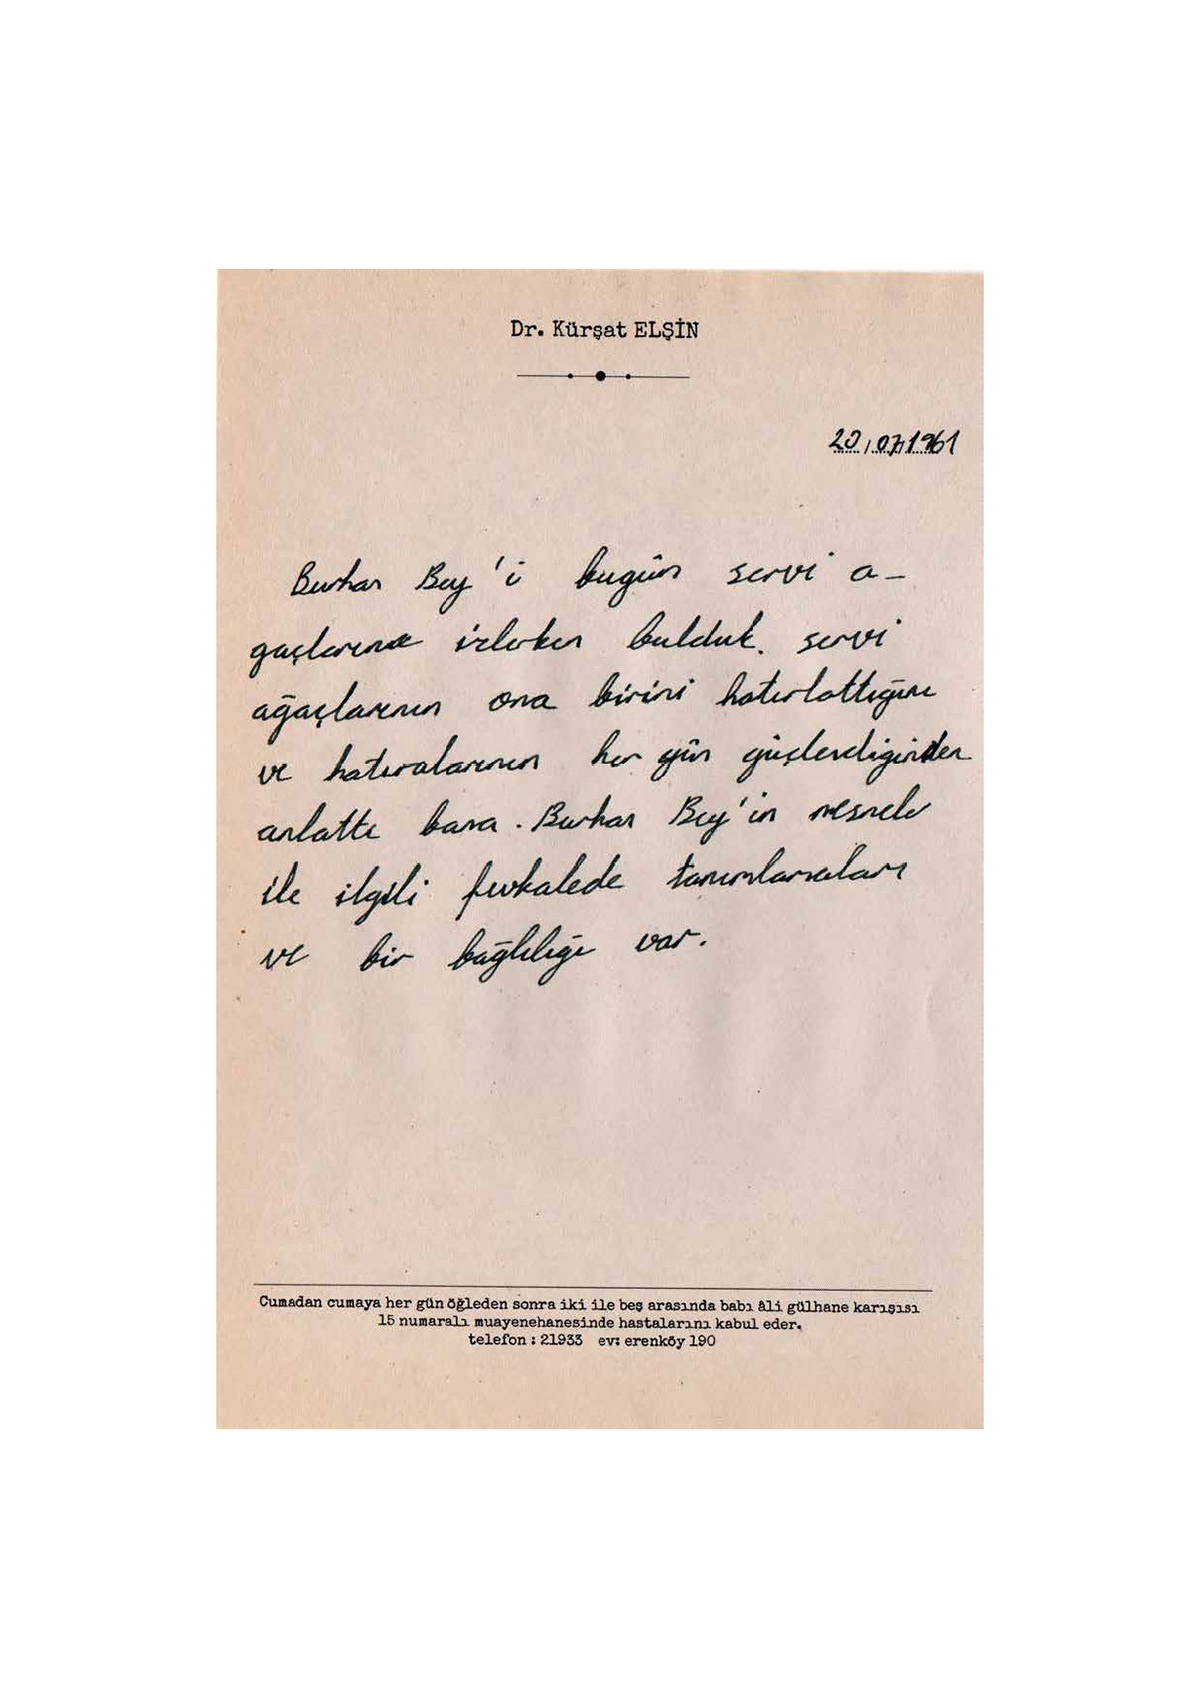 Dr. Kürşat ELŞİN
20/07/1961
Burhan Bey'i bugün servi a-
ğaçlarını izlerken bulduk. servi
ağaçlarının ona birini hatırlattığını
ve hatıralarının her gün güçlendiğinden
anlattı bana. Burhan Bey'in nesneler
ile ilgili fevkalede tanımlamaları
ve bir bağlılığı var.
Cumadan cumaya her gün öğleden sonra iki ile beş arasında babı âli gülhane karışısı
15 numaralı muayenehanesinde hastalarını kabul eder.
telefon : 21933 ev: erenköy 190